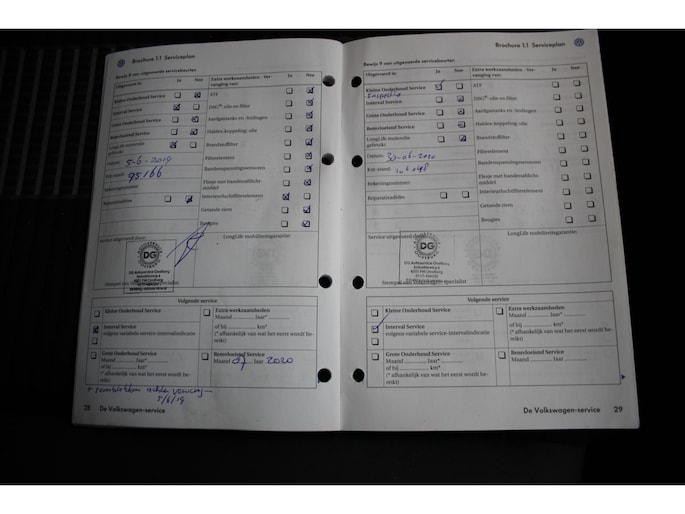 Brochure 1.1 Serviceplan
Bewijs 8 van uitgevoerde servicebeurten
Uitgevoerd is: Ja Nee Extra werkzaamheden - Ver-
vanging van: Ja Nee
Kleine Onderhoud Service
Interval Service
Grote Onderhoud Service
Remvloeistof Service
LongLife motorolie
gebruikt
Datum: 5-6-2019
Km-stand: 95166
Rekeningnummer:
Reparatieadvies
ATF
DSG®-olie en filter
Aardgastanks en -leidingen
Haldex-koppeling: olie
Brandstoffilter
Filterelement
Bandenspanningssensoren
Flesje met bandenafdicht-
middel
Interieurluchtfilterelement
Getande riem
Bougies
Service uitgevoerd door: LongLife mobiliteitsgarantie:
DG
DG Autoservice Oostburg
Volgende service
Kleine Onderhoud Service
Interval Service
volgens variabele service-intervalindicatie
Grote Onderhoud Service
Maand Jaar*
of bij km*
(* afhankelijk van wat het eerst wordt be-
reikt)
Extra werkzaamheden
Maand Jaar*
of bij km*
(* afhankelijk van wat het eerst wordt be-
reikt)
Remvloeistof Service
Maand 07 Jaar 2020
5/6/19
28 De Volkswagen-service
Brochure 1.1 Serviceplan
Bewijs 9 van uitgevoerde servicebeurten
Uitgevoerd is: Ja Nee Extra werkzaamheden - Ver-
vanging van: Ja Nee
Kleine Onderhoud Service
Inspectie
Interval Service
Grote Onderhoud Service
Remvloeistof Service
LongLife motorolie
gebruikt
Datum: 30-06-2020
Km-stand:
Rekeningnummer:
Reparatieadvies
ATF
DSG®-olie en filter
Aardgastanks en -leidingen
Haldex-koppeling: olie
Brandstoffilter
Filterelement
Bandenspanningssensoren
Flesje met bandenafdicht-
middel
Interieurluchtfilterelement
Getande riem
Bougies
Service uitgevoerd door: LongLife mobiliteitsgarantie:
DG
DG Autoservice Oostburg
Stempel van Volkswagen-specialist
Volgende service
Kleine Onderhoud Service
Interval Service
volgens variabele service-intervalindicatie
Grote Onderhoud Service
Maand Jaar*
of bij km*
(* afhankelijk van wat het eerst wordt be-
reikt)
Extra werkzaamheden
Maand Jaar*
of bij km*
(* afhankelijk van wat het eerst wordt be-
reikt)
Remvloeistof Service
Maand Jaar
De Volkswagen-service 29